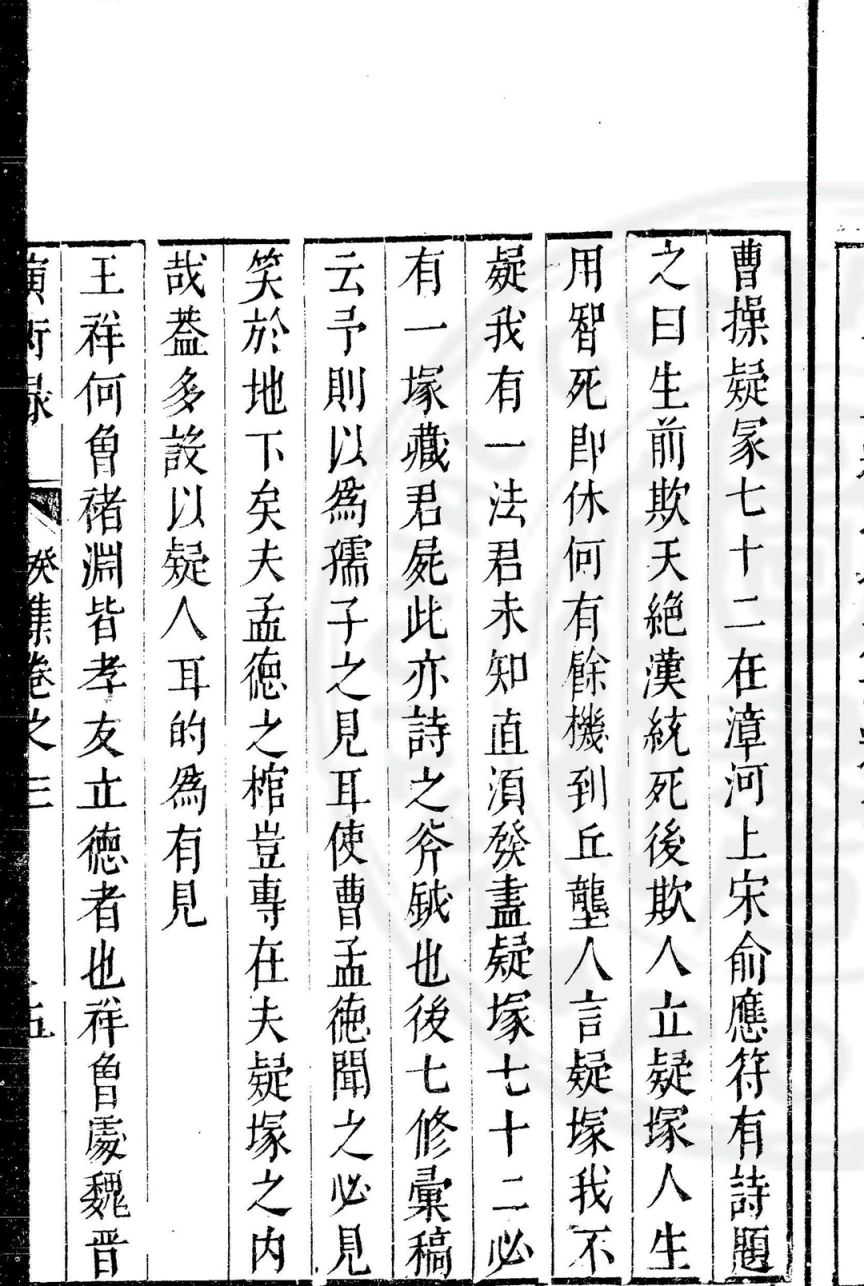 曹操疑冢七十二在漳河上宋俞應符有詩題
之曰生前欺天絶漢統死後欺人立疑塚人生
用智死即休何有餘機到丘壟人言疑塚我不
疑我有一法君未知直須發盡疑塚七十二必
有一塚藏君屍此亦詩之斧鉞也後七修彙稿
云予則以為孺子之見耳使曹孟德聞之必見
笑於地下矣夫孟德之棺豈專在夫疑塚之内
哉葢多設以疑人耳的爲有見
王祥何曾禇淵皆孝友立德者也祥曾處魏晋
癸集卷之三 五